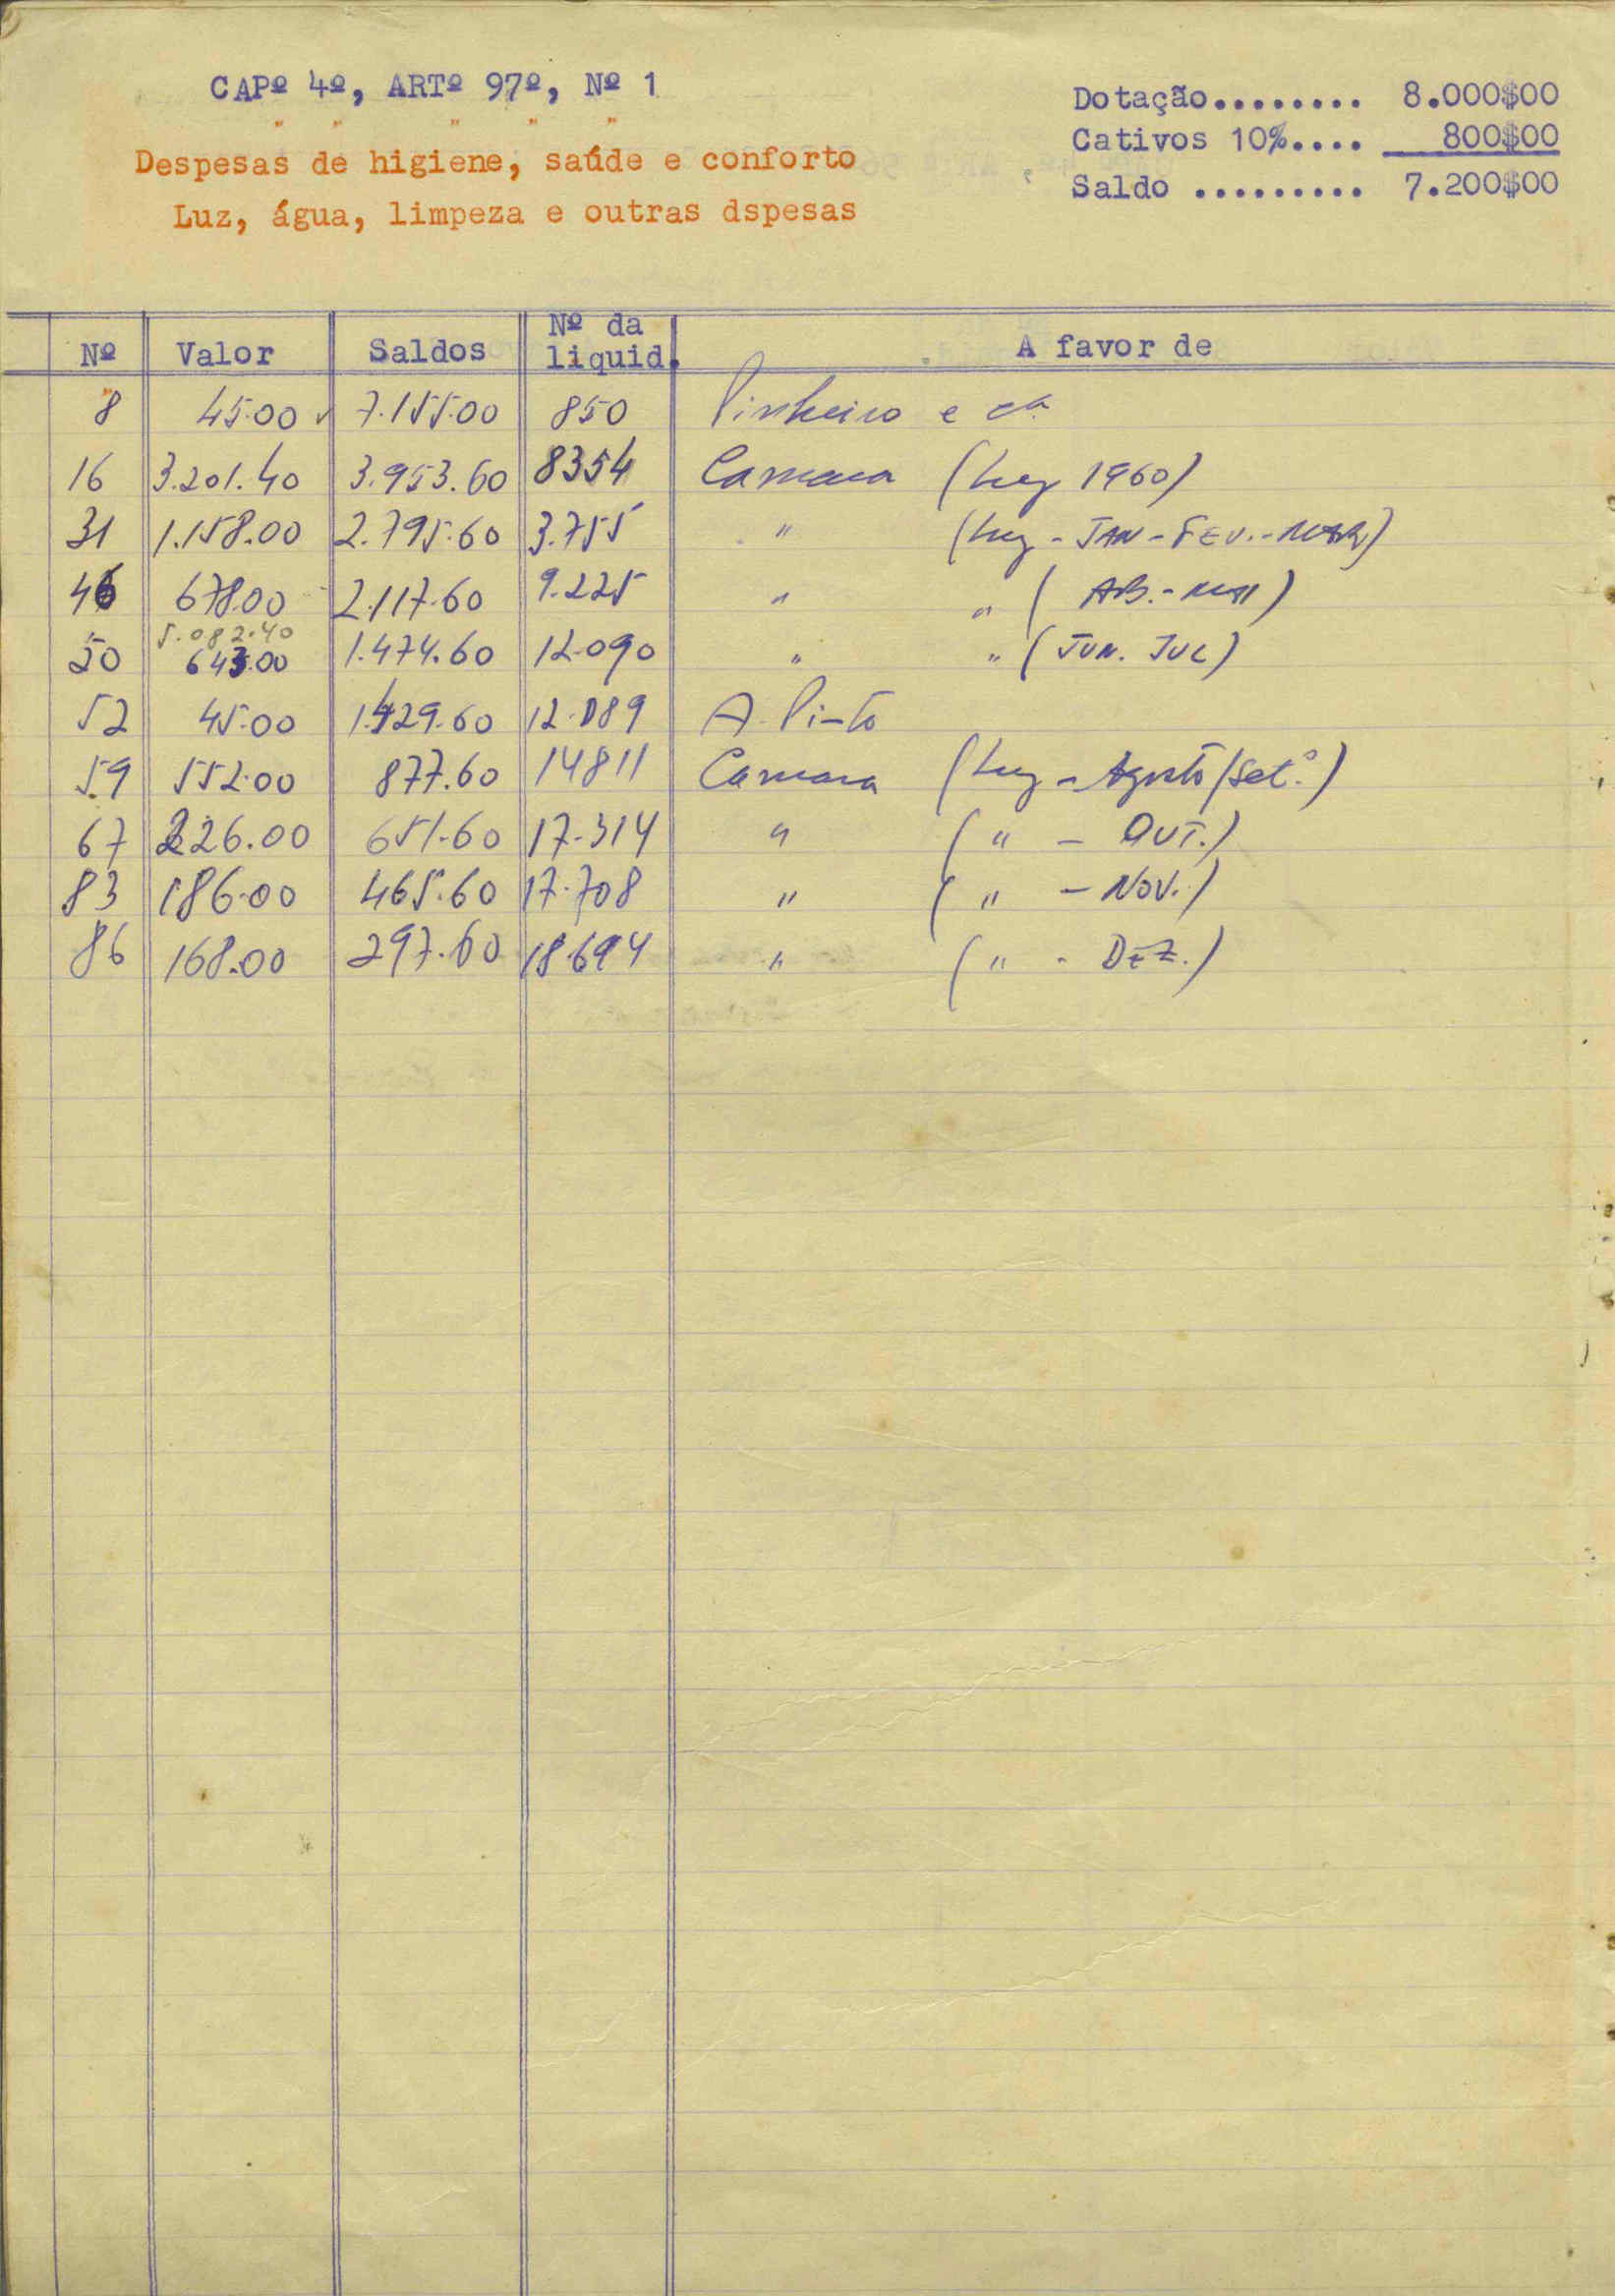 CAPº 4º, ARTº 97º, Nº 1
" " " " "
Despesas de higiene, saúde e conforto
Luz, água, limpeza e outras dspesas
Dotação........ 8.000$00
Cativos 10%.... 800$00
Saldo ......... 7.200$00
Nº Valor Saldos Nº da liquid. A favor de
8 45.00 7.155.00 850 Pinheiro e Cª
16 3.201.40 3.953.60 8354 Camara (Luz 1960)
31 1.158.00 2.795.60 3.755 " (Luz - JAN - FEV. - MAR)
46 678.00 2.117.60 9.225 " " (AB. - MAI)
5.082.40
50 643.00 1.474.60 12.090 " " (JUN. JUL)
52 45.00 1.429.60 12.089 A. Pinto
59 552.00 877.60 14811 Camara (Luz - Agosto/Set.º)
67 226.00 651.60 17.314 " ( " - OUT.)
83 186.00 465.60 17.708 " ( " - NOV.)
86 168.00 297.60 18.694 " ( " - DEZ.)